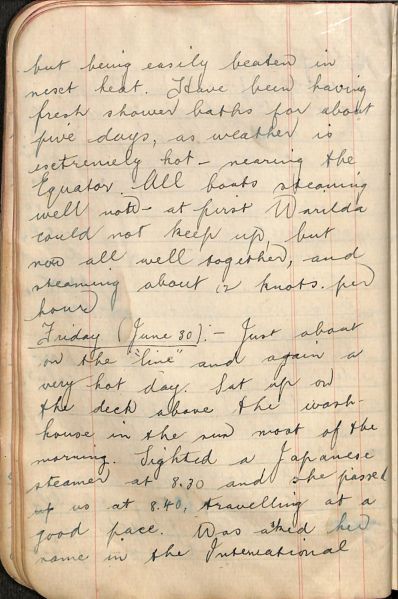 but being easily beaten in
next heat. Have been having
fresh shower baths for about
five days, as weather is
extremely hot - nearing the
Equator. All boats steaming
well now - at first Warilda
could not keep up, but
now all well together, and
steaming about 12 knots per
hour
Friday (June 30):- Just about
on the "line" and again a
very hot day. Sat up on
the deck above the wash-
house in the sun most of the
morning. Sighted a Japanese
steamer at 8.30 and she passed
up us at 8.40, travelling at a
good pace. Was asked her
name in the International